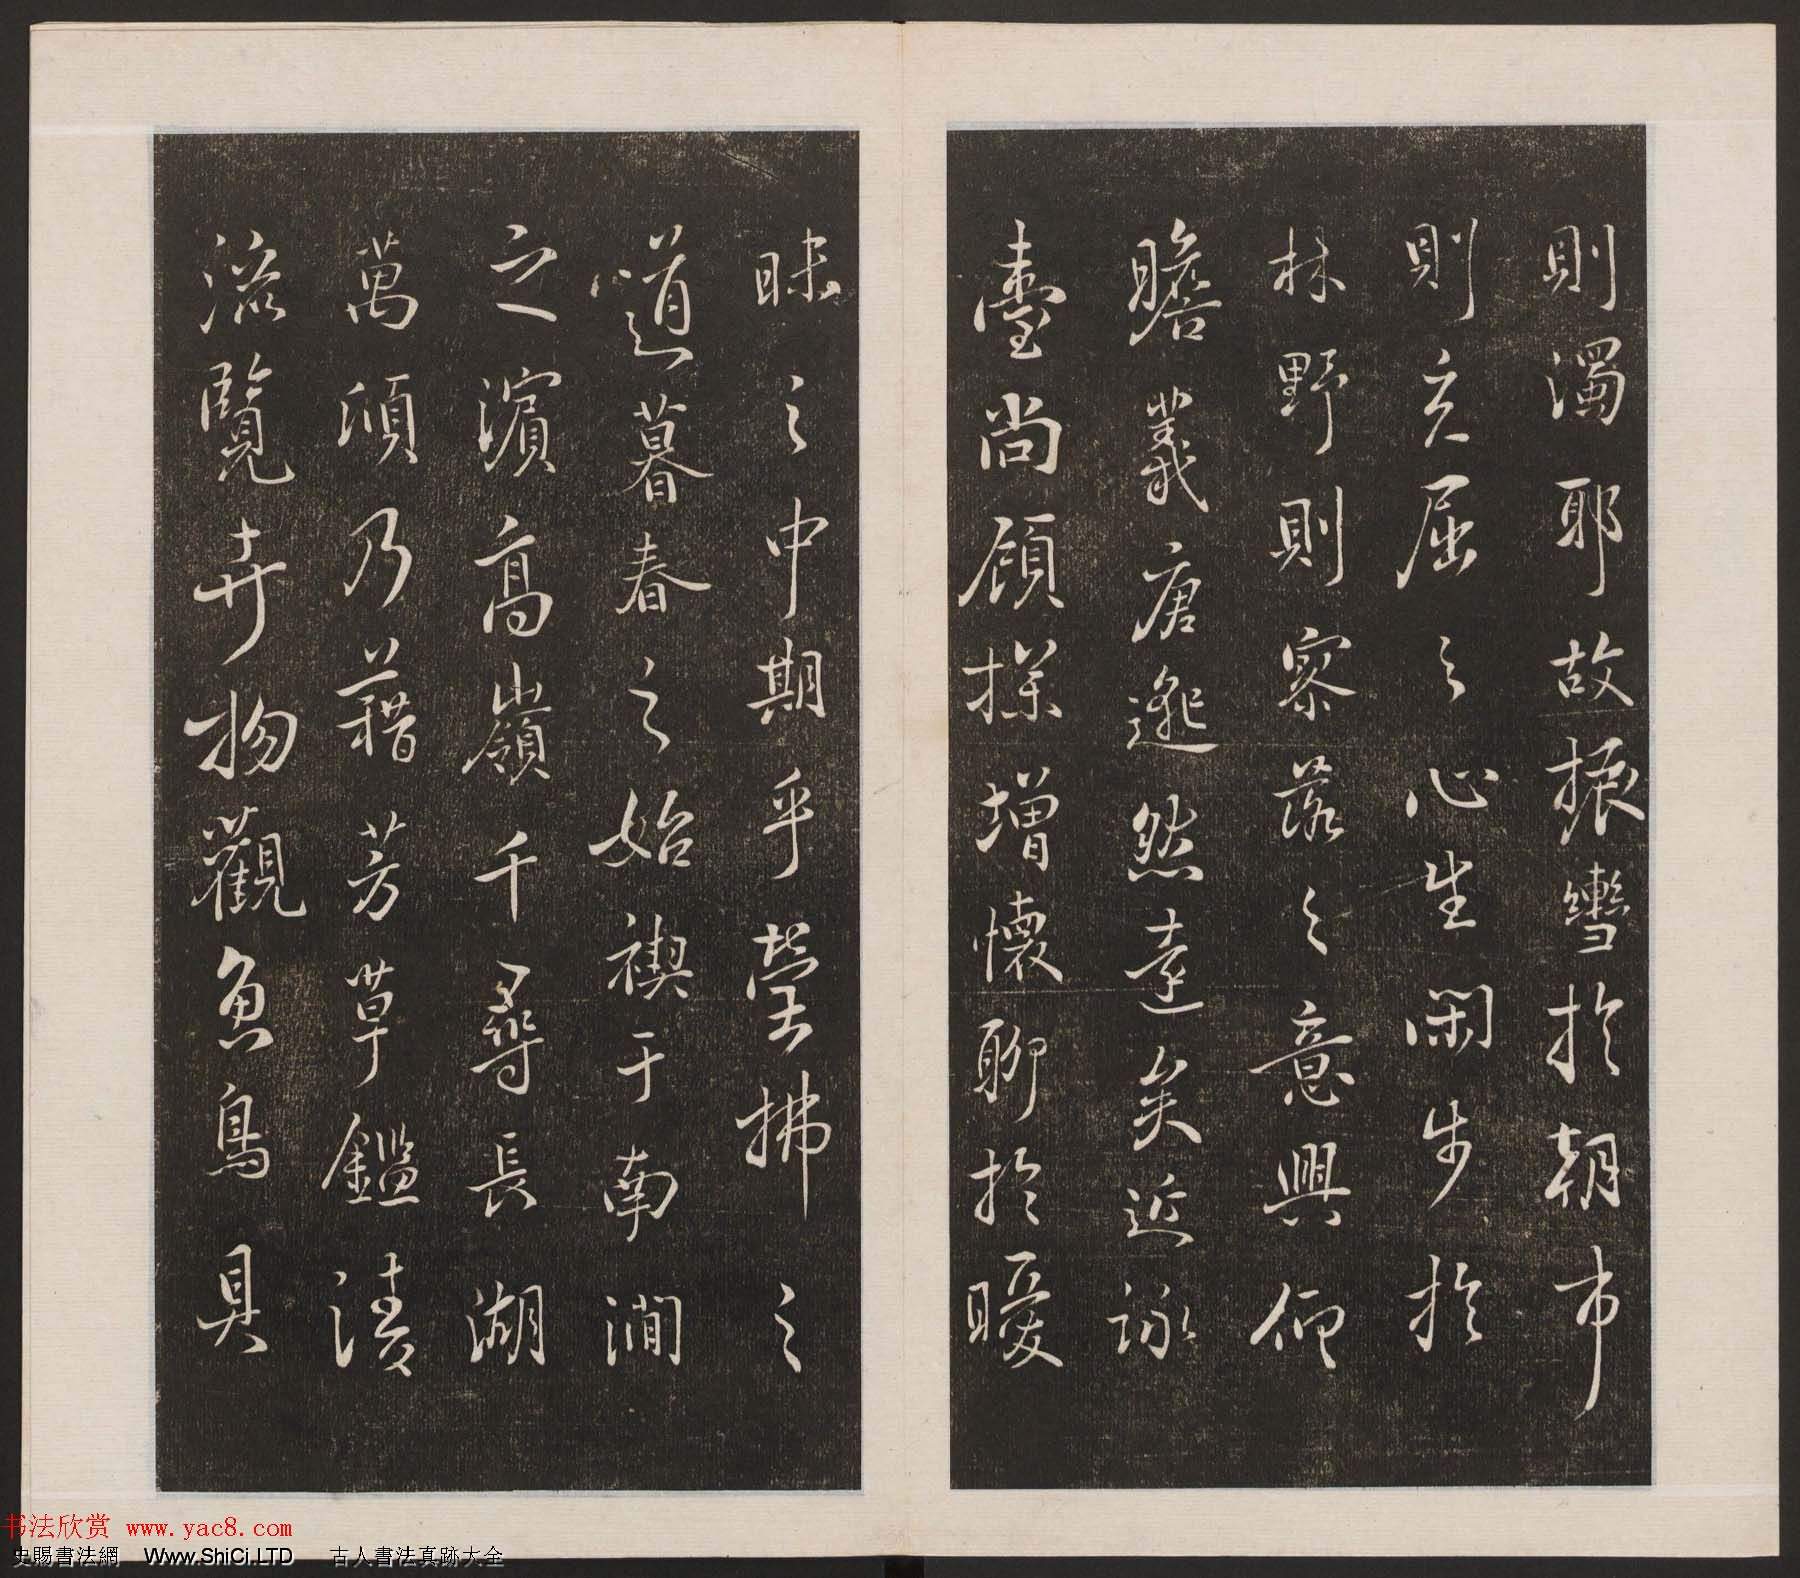 則濁耶故振轡於朝市
則充屈之心生閑步於
林野則寥落之意興仰
瞻羲唐邈然遠矣近詠
臺尚顧探增懷聊於曖
昧之中期乎瑩拂之
道暮春之始禊于南澗
之濱高嶺千尋長湖
萬頃乃藉芳草鑑清
流覽卉物觀魚鳥具
书法欣赏 www.yac8.com
史賜書法網 Www.ShiCi.LTD 古人書法真跡大全